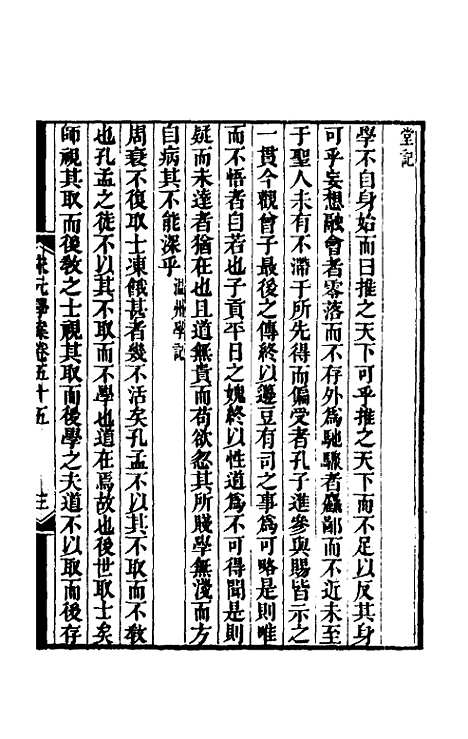 堂記
學不自身始而曰推之天下可乎推之天下而不足以反其身
可乎妄想融會者零落而不存外爲馳驟者麤鄙而不近未至
于聖人未有不滯于所先得而偏受者孔子進參與賜皆示之
一貫今觀曾子最後之傳終以籩豆有司之事爲可略是則唯
而不悟者自若也子貢平日之愧終以性道爲不可得聞是則
疑而未達者猶在也且道無貴而苟欲忽其所賤學無淺而方
自病其不能深乎溫州學記
周衰不復取士凍餓甚者幾不活矣孔孟不以其不取而不敎
也孔孟之徒不以其不取而不學也道在焉故也後世取士矣
師視其取而後敎之士視其取而後學之夫道不以取而後存
宋元學案卷五十五